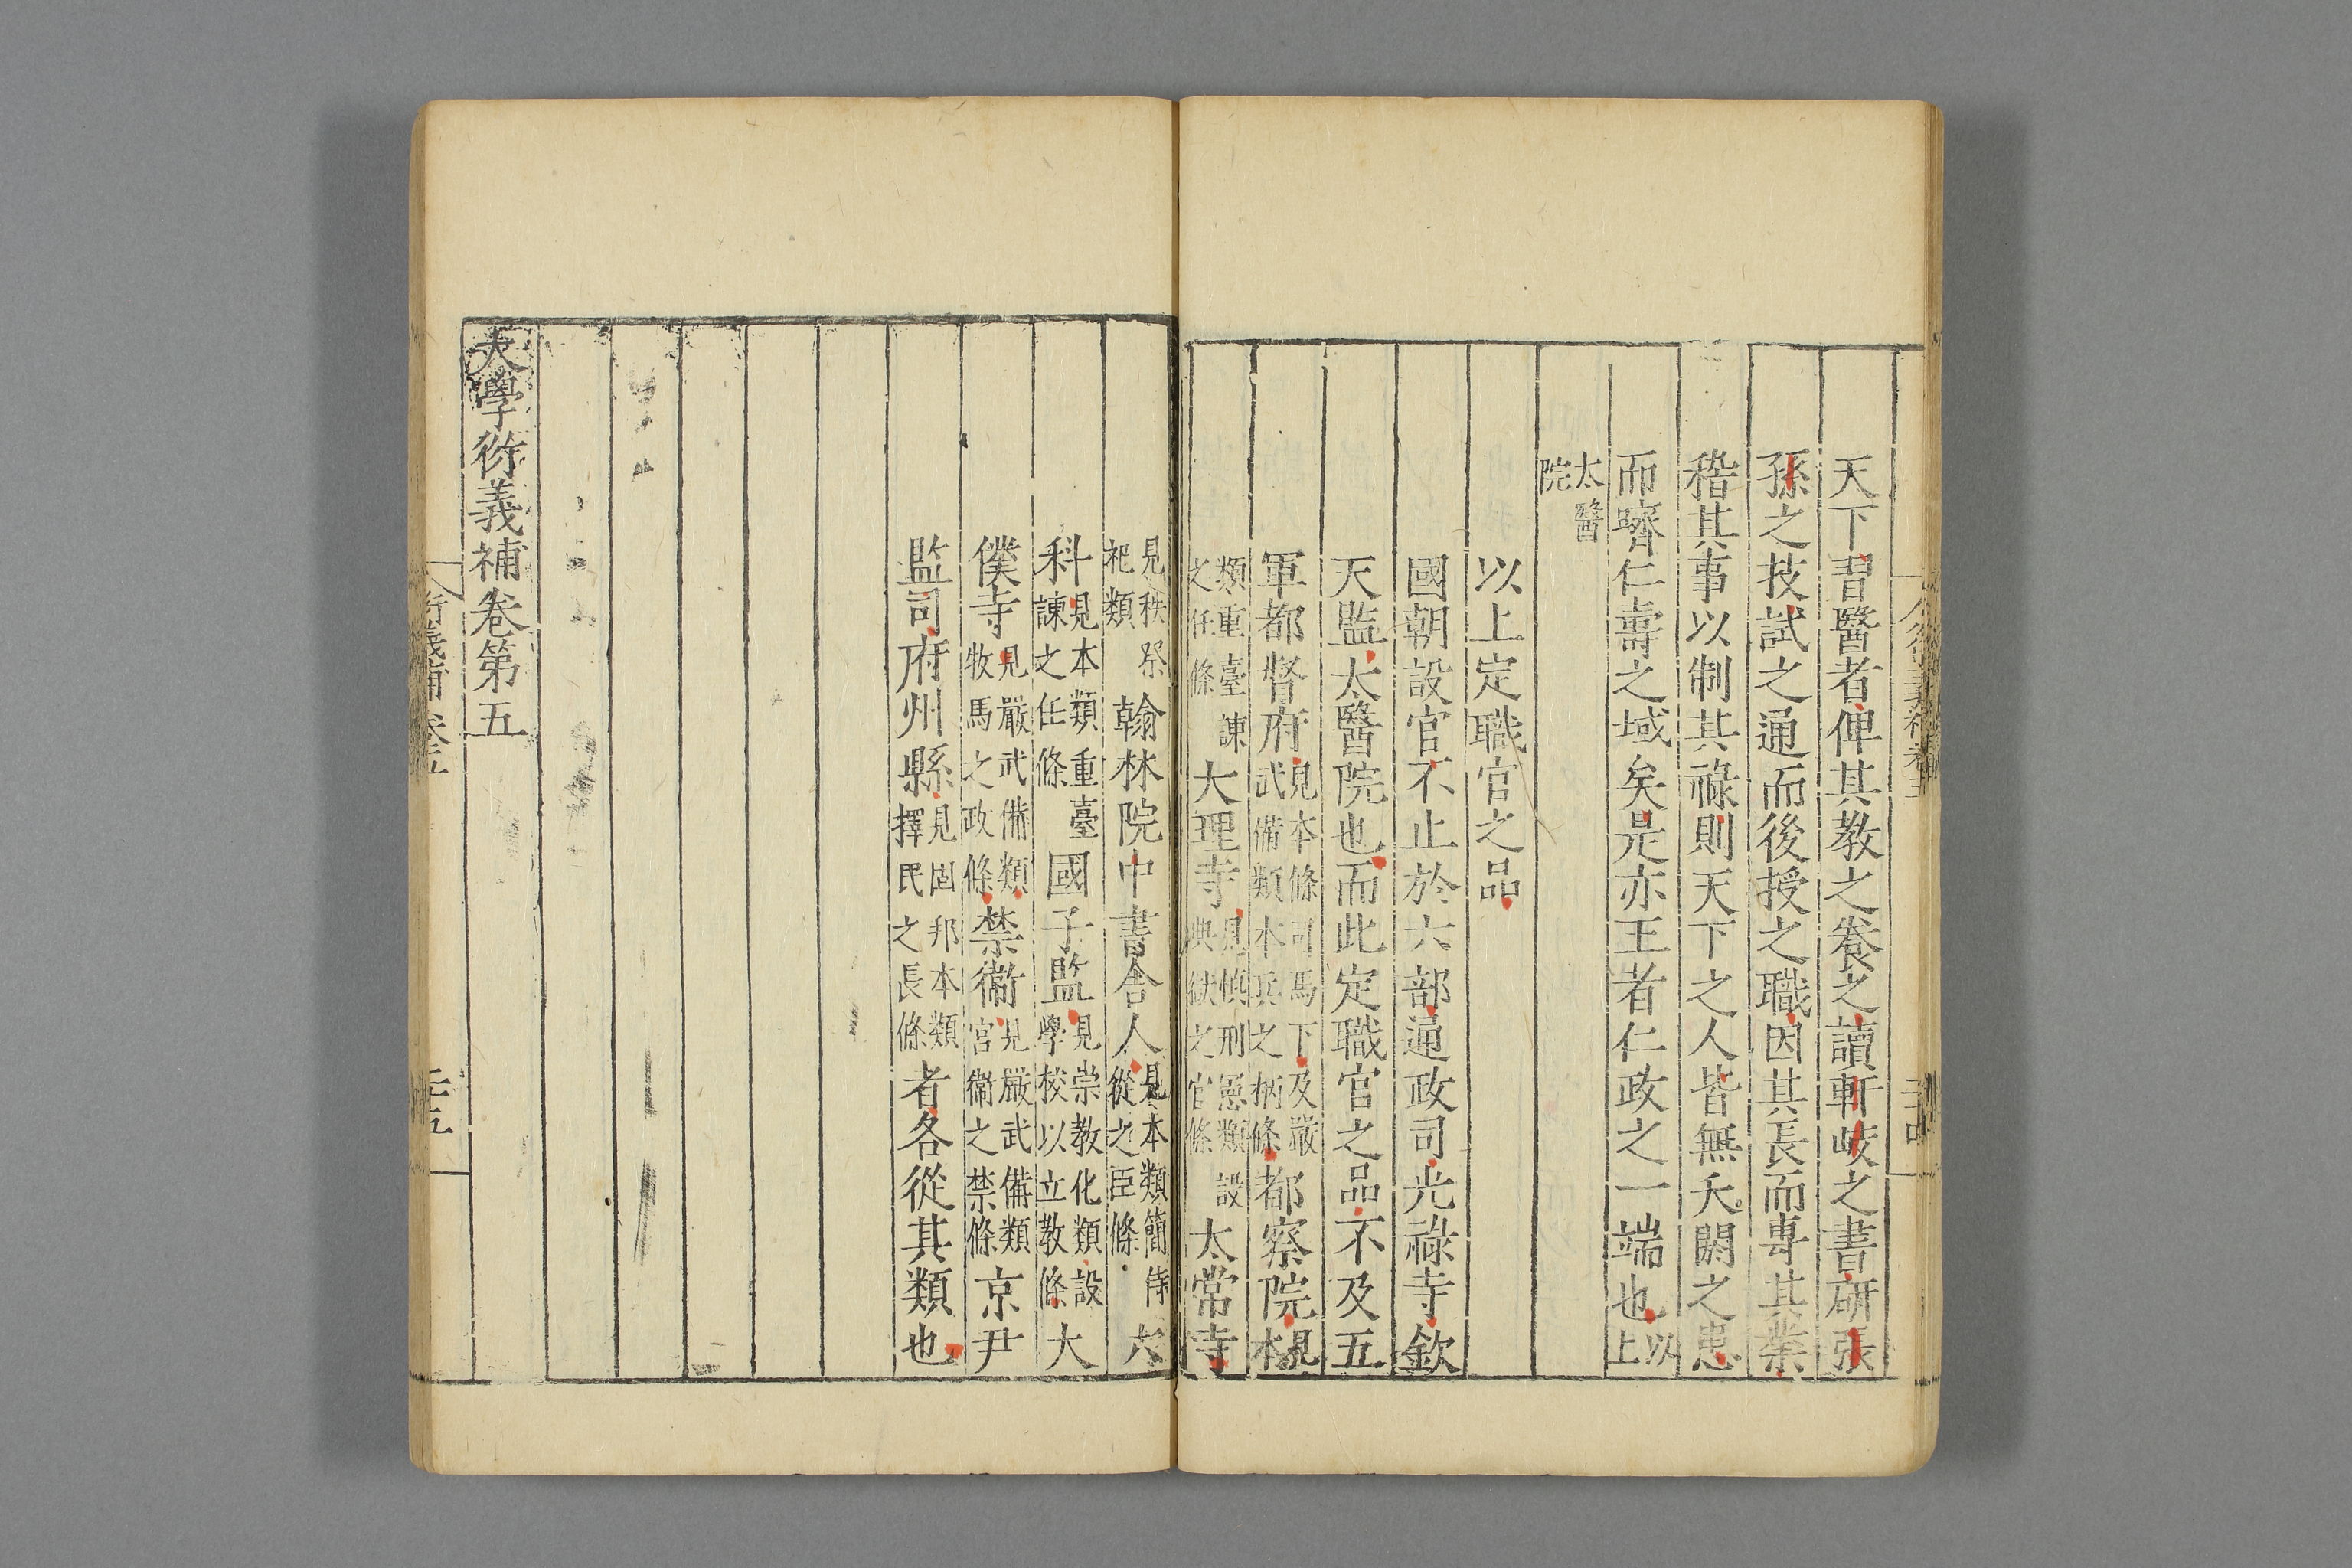 天下習醫者俾其教之養之讀軒岐之書研張
孫之技試之通而後授之職因其長而專其業
稽其事以制其祿則天下之人皆無夭閼之患
而躋仁壽之域矣是亦王者仁政之一端也以上
太醫院
以上定職官之品
國朝設官不止於六部通政司光祿寺欽
天監太醫院也而此定職官之品不及五
軍都督府見本條司馬下及嚴武備類本兵之柄條都察院見本
類重臺諫之任條大理寺見慎刑憲類設典獄之官條太常寺
見秩祭祀類翰林院中書舍人見本類簡侍從之臣條六
科見本類重臺諫之任條國子監見崇教化類設學校以立教條大
僕寺見嚴武備類牧馬之政條禁衛見嚴武備類宮衛之禁條京尹
監司府州縣見固邦本類擇民之長條者各從其類也
大學衍義補卷第五
衍義補卷五
二十五